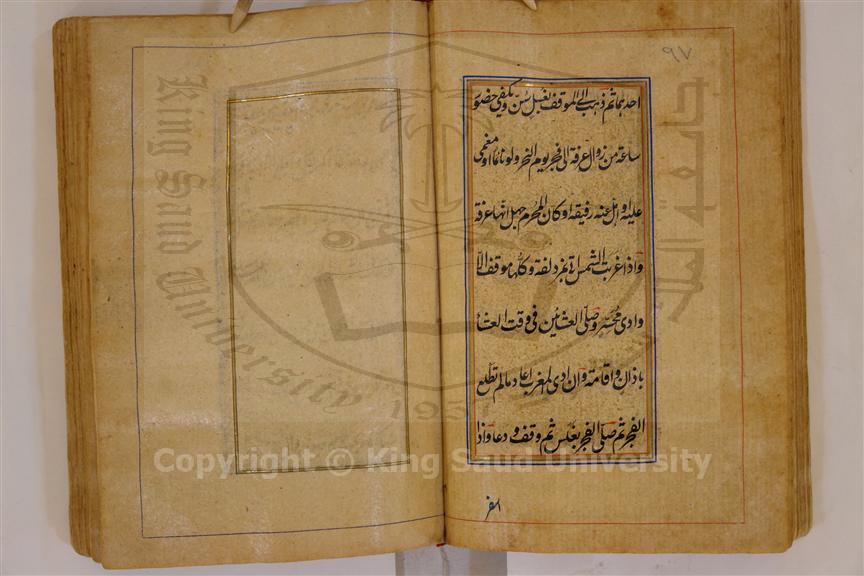 ٩٧
احدهما ثم ذهب الى الموقف بغسل سن ويكفي حضو
ساعة من زوال عرفة الى فجر يوم النحر ولو نائما او مغمى
عليه او اهل عنه رفيقه او كان المحرم جهل انها عرفة
واذا غربت الشمس اتى مزدلفة وكلها موقف الا
وادى محسر وصلى العشائين فى وقت العشا
باذان واقامة وان ادى المغرب اعاد مالم تطلع
الفجر ثم صلى الفجر بغلس ثم وقف ودعا واذا
اسفر
King Saud University
جامعة الملك
195
Copyright © King Saud University